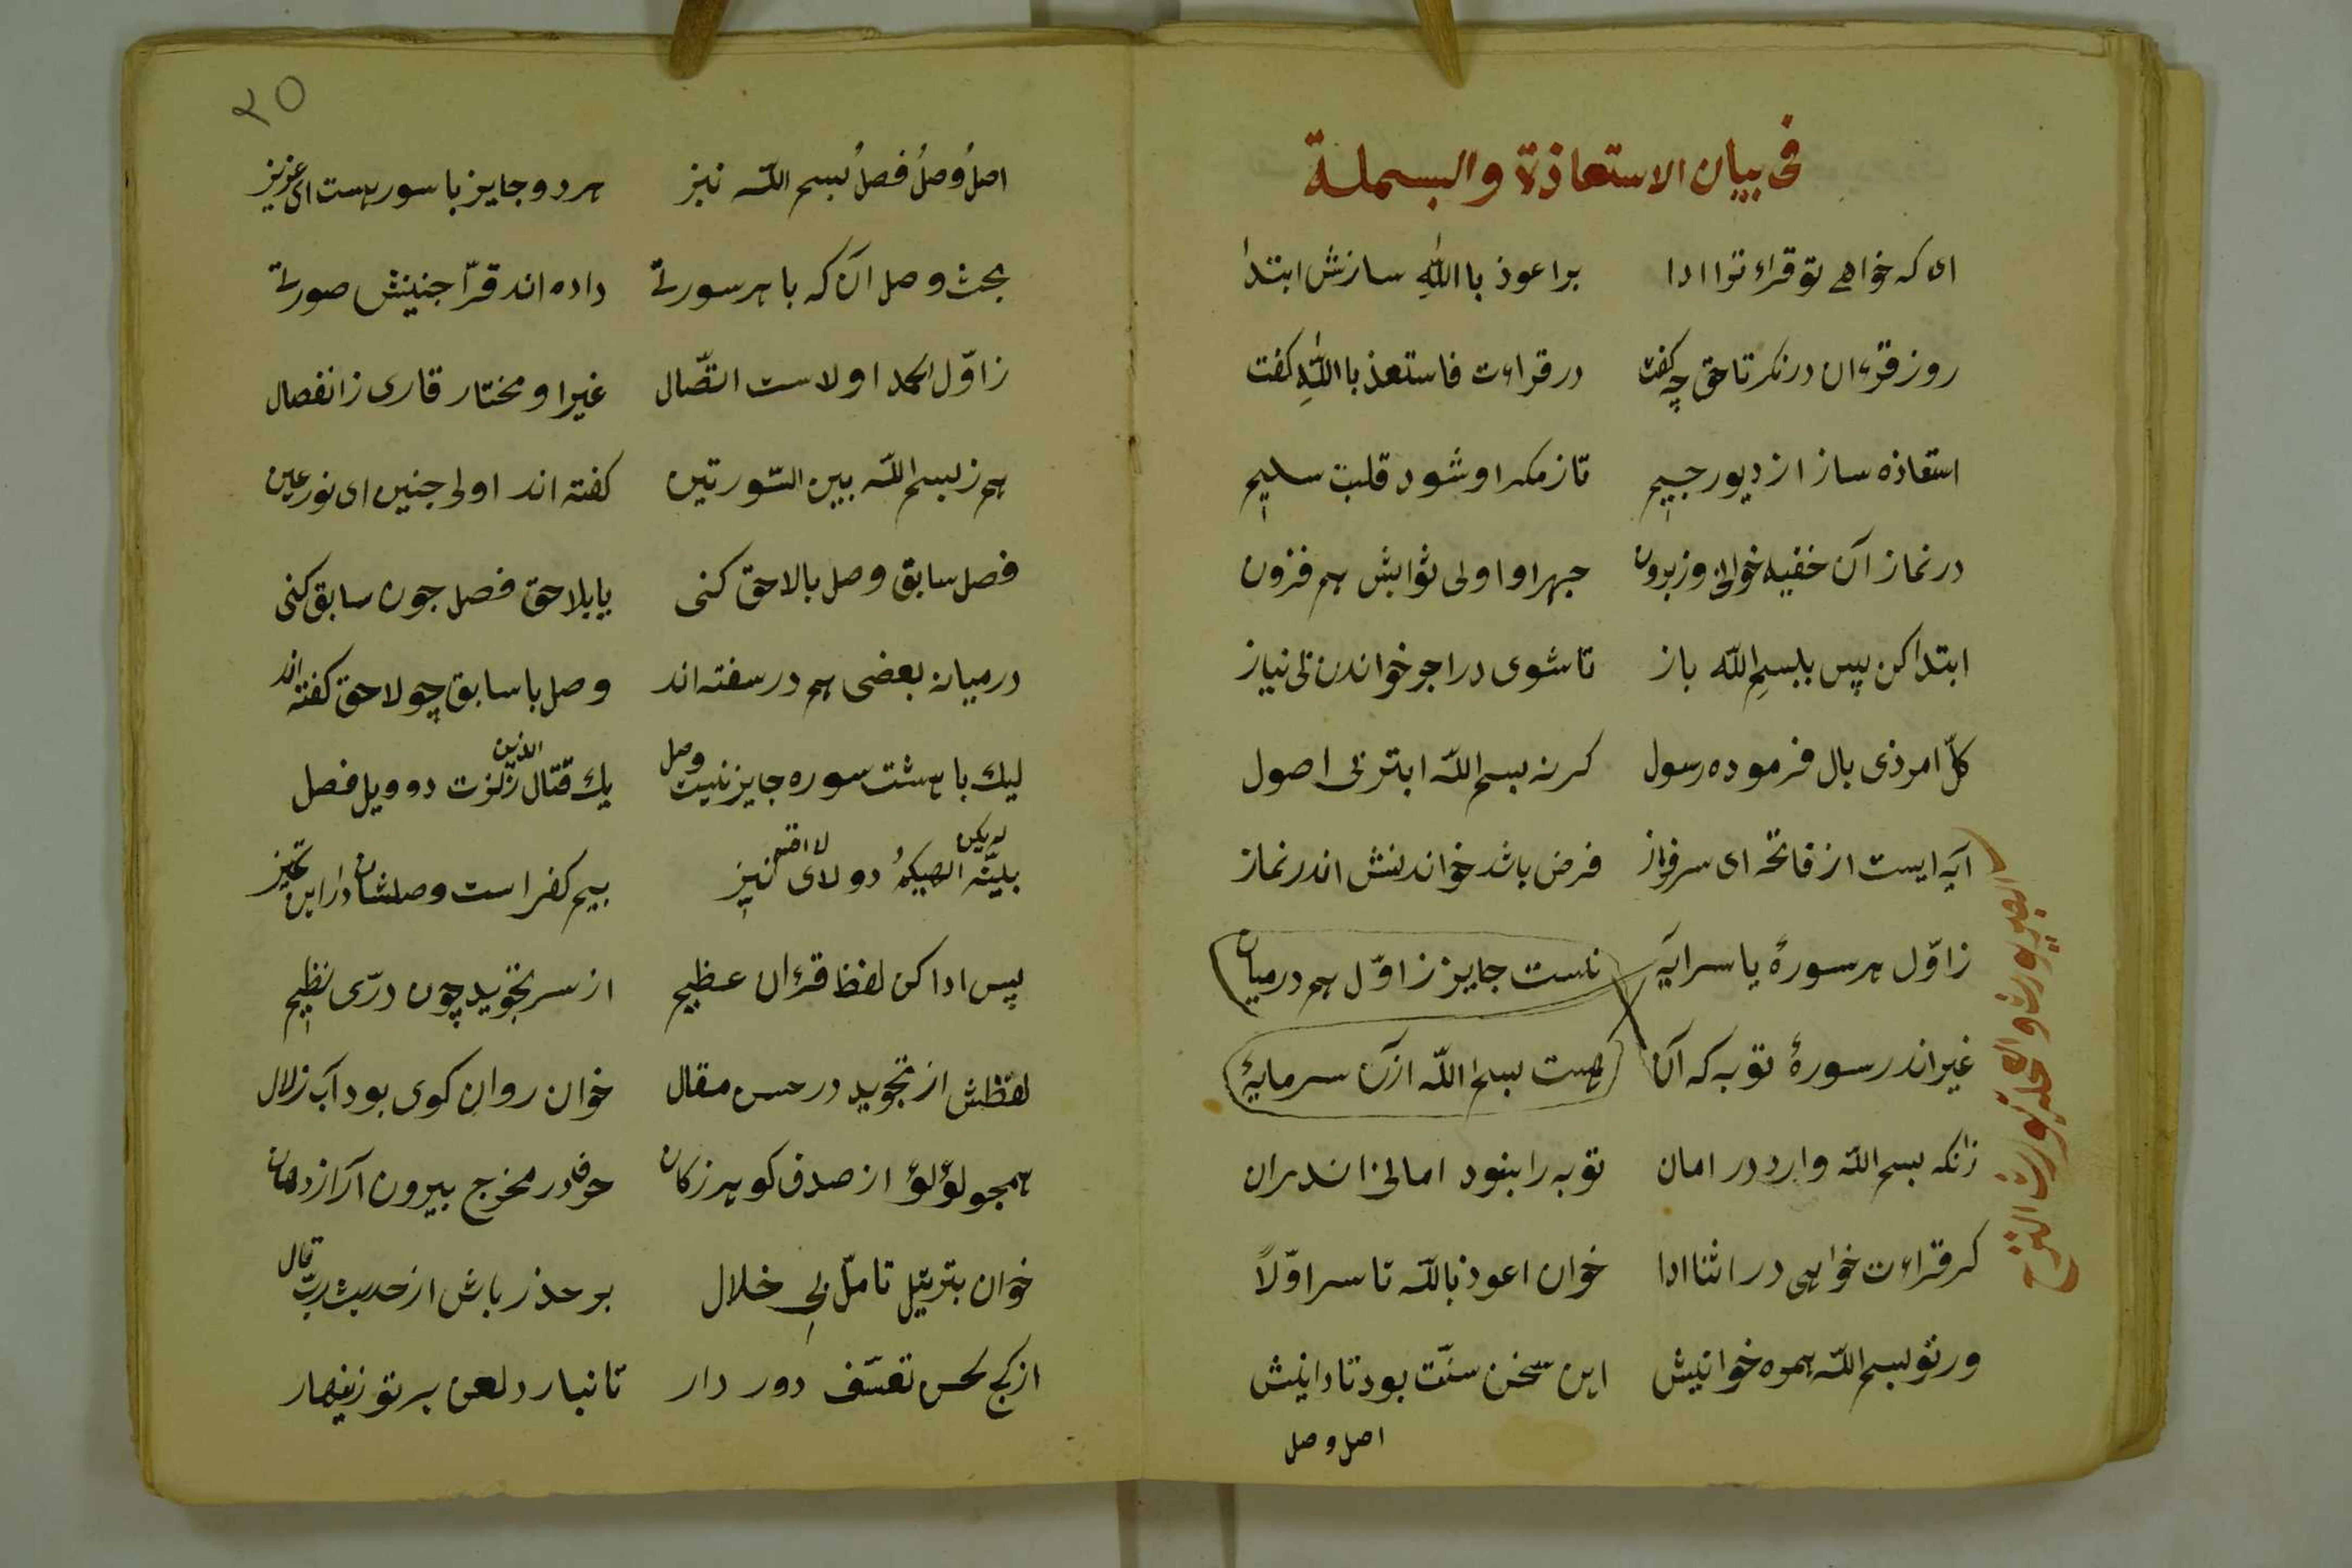 فی بیان الاستعاذة والبسملة
ای که خواهے تو قراءتوا ادا براعوذ باالله سازش ابتدا
روز قرءان درنکر تا حق چه کفت در قراءت فاستعذ باالله کفت
استعاذه ساز از دیو رجیم تا ز مکر او شود قلبت سلیم
در نماز آن خفیه خوانی وز برون جهر او اولی ثوابش هم فزون
ابتدا کن پس ببسم الله باز تا شوی در اجر خواندن بی نیاز
کلّ امر ذی بال فرموده رسول کرنه بسم الله ابتر بی اصول
آیه ایست از فاتحه ای سرفراز فرض باشد خواندنش اندر نماز
زاوّل هر سورهٔ یا سر آیه نیست جایز ز اوّل هم درمیان
غیر اندر سورهٔ توبه که آن هست بسم الله از آن سرمایهٔ
زانکه بسم الله وارد در امان توبه را بنود امانی اندران
کر قراءت خواهی در اثنا ادا خوان اعوذ بالله تا سر اوّلاً
ور تو بسم الله همره خوانیش این سخن سنّت بود تا دانیش
اصل وصل
۲۵
اصلُ وصلُ فصلُ بسم الله نیز هر دو جایز با سور هست ای عزیز
بحث وصل آن که با هر سورتے داده اند قرّا جنینش صورتے
زاوّل الحمد اولاست اتّصال غیر او مختار قاری ز انفصال
هم ز بسم الله بین السّورتین کفته اند اولی جنین ای نور عین
فصل سابق وصل بالاحق کنی یا بلاحق فصل جون سابق کنی
در میان بعضی هم در سفته اند وصل با سابق چو لاحق کفته اند
لیك با هشت سوره جایز نیست وصل یك قتال الذین زلزت دو ویل فصل
بلیّنه لم یکن الهیکمُ دو لای لا اقسم نیز بیم کفر است وصلشان در این تمییز
پس ادا کن لفظ قرءان عظیم از سر تجوید چون درّی نظیم
لفظش از تجوید در حسن مقال خوان روان کوی بود آب زلال
همجو لؤلؤ از صدف کوهر زکان حرف در مخرج بیرون آر از دهان
خوان بترتیل تامّل بی خلال بر حذر باش از حدیث ربّ قال
از کج لحن تعسّف دور دار تا نبارد لعن بر تو زینهار